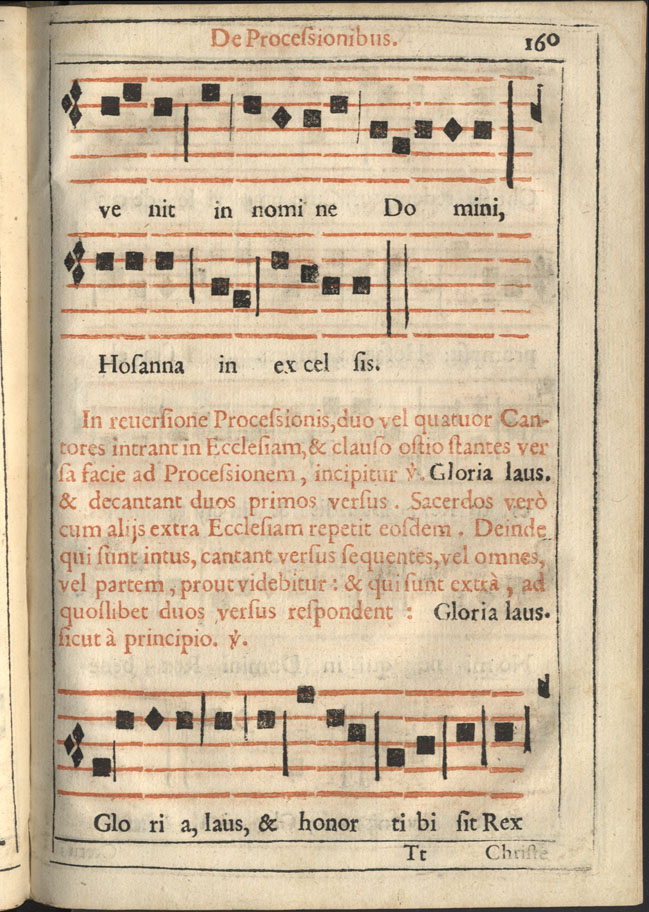 De Proceſsionibus.
160
ve nit in nomi ne Do mini,
Hoſanna in ex cel ſis.
In reuerſione Proceſsionis,duo vel quatuor Can-
tores intrant in Eccleſiam,& clauſo oſtio ſtantes ver
ſa facie ad Proceſsionem, incipitur ℣. Gloria laus.
& decantant duos primos verſus. Sacerdos verò
cum alijs extra Eccleſiam repetit eoſdem. Deinde
qui ſunt intus, cantant verſus ſequentes,vel omnes,
vel partem, prout videbitur: & qui ſunt extrà, ad
quoſlibet duos verſus reſpondent: Gloria laus.
ſicut à principio. ℣.
Glo ri a, laus, & honor ti bi ſit Rex
Tt Chriſte